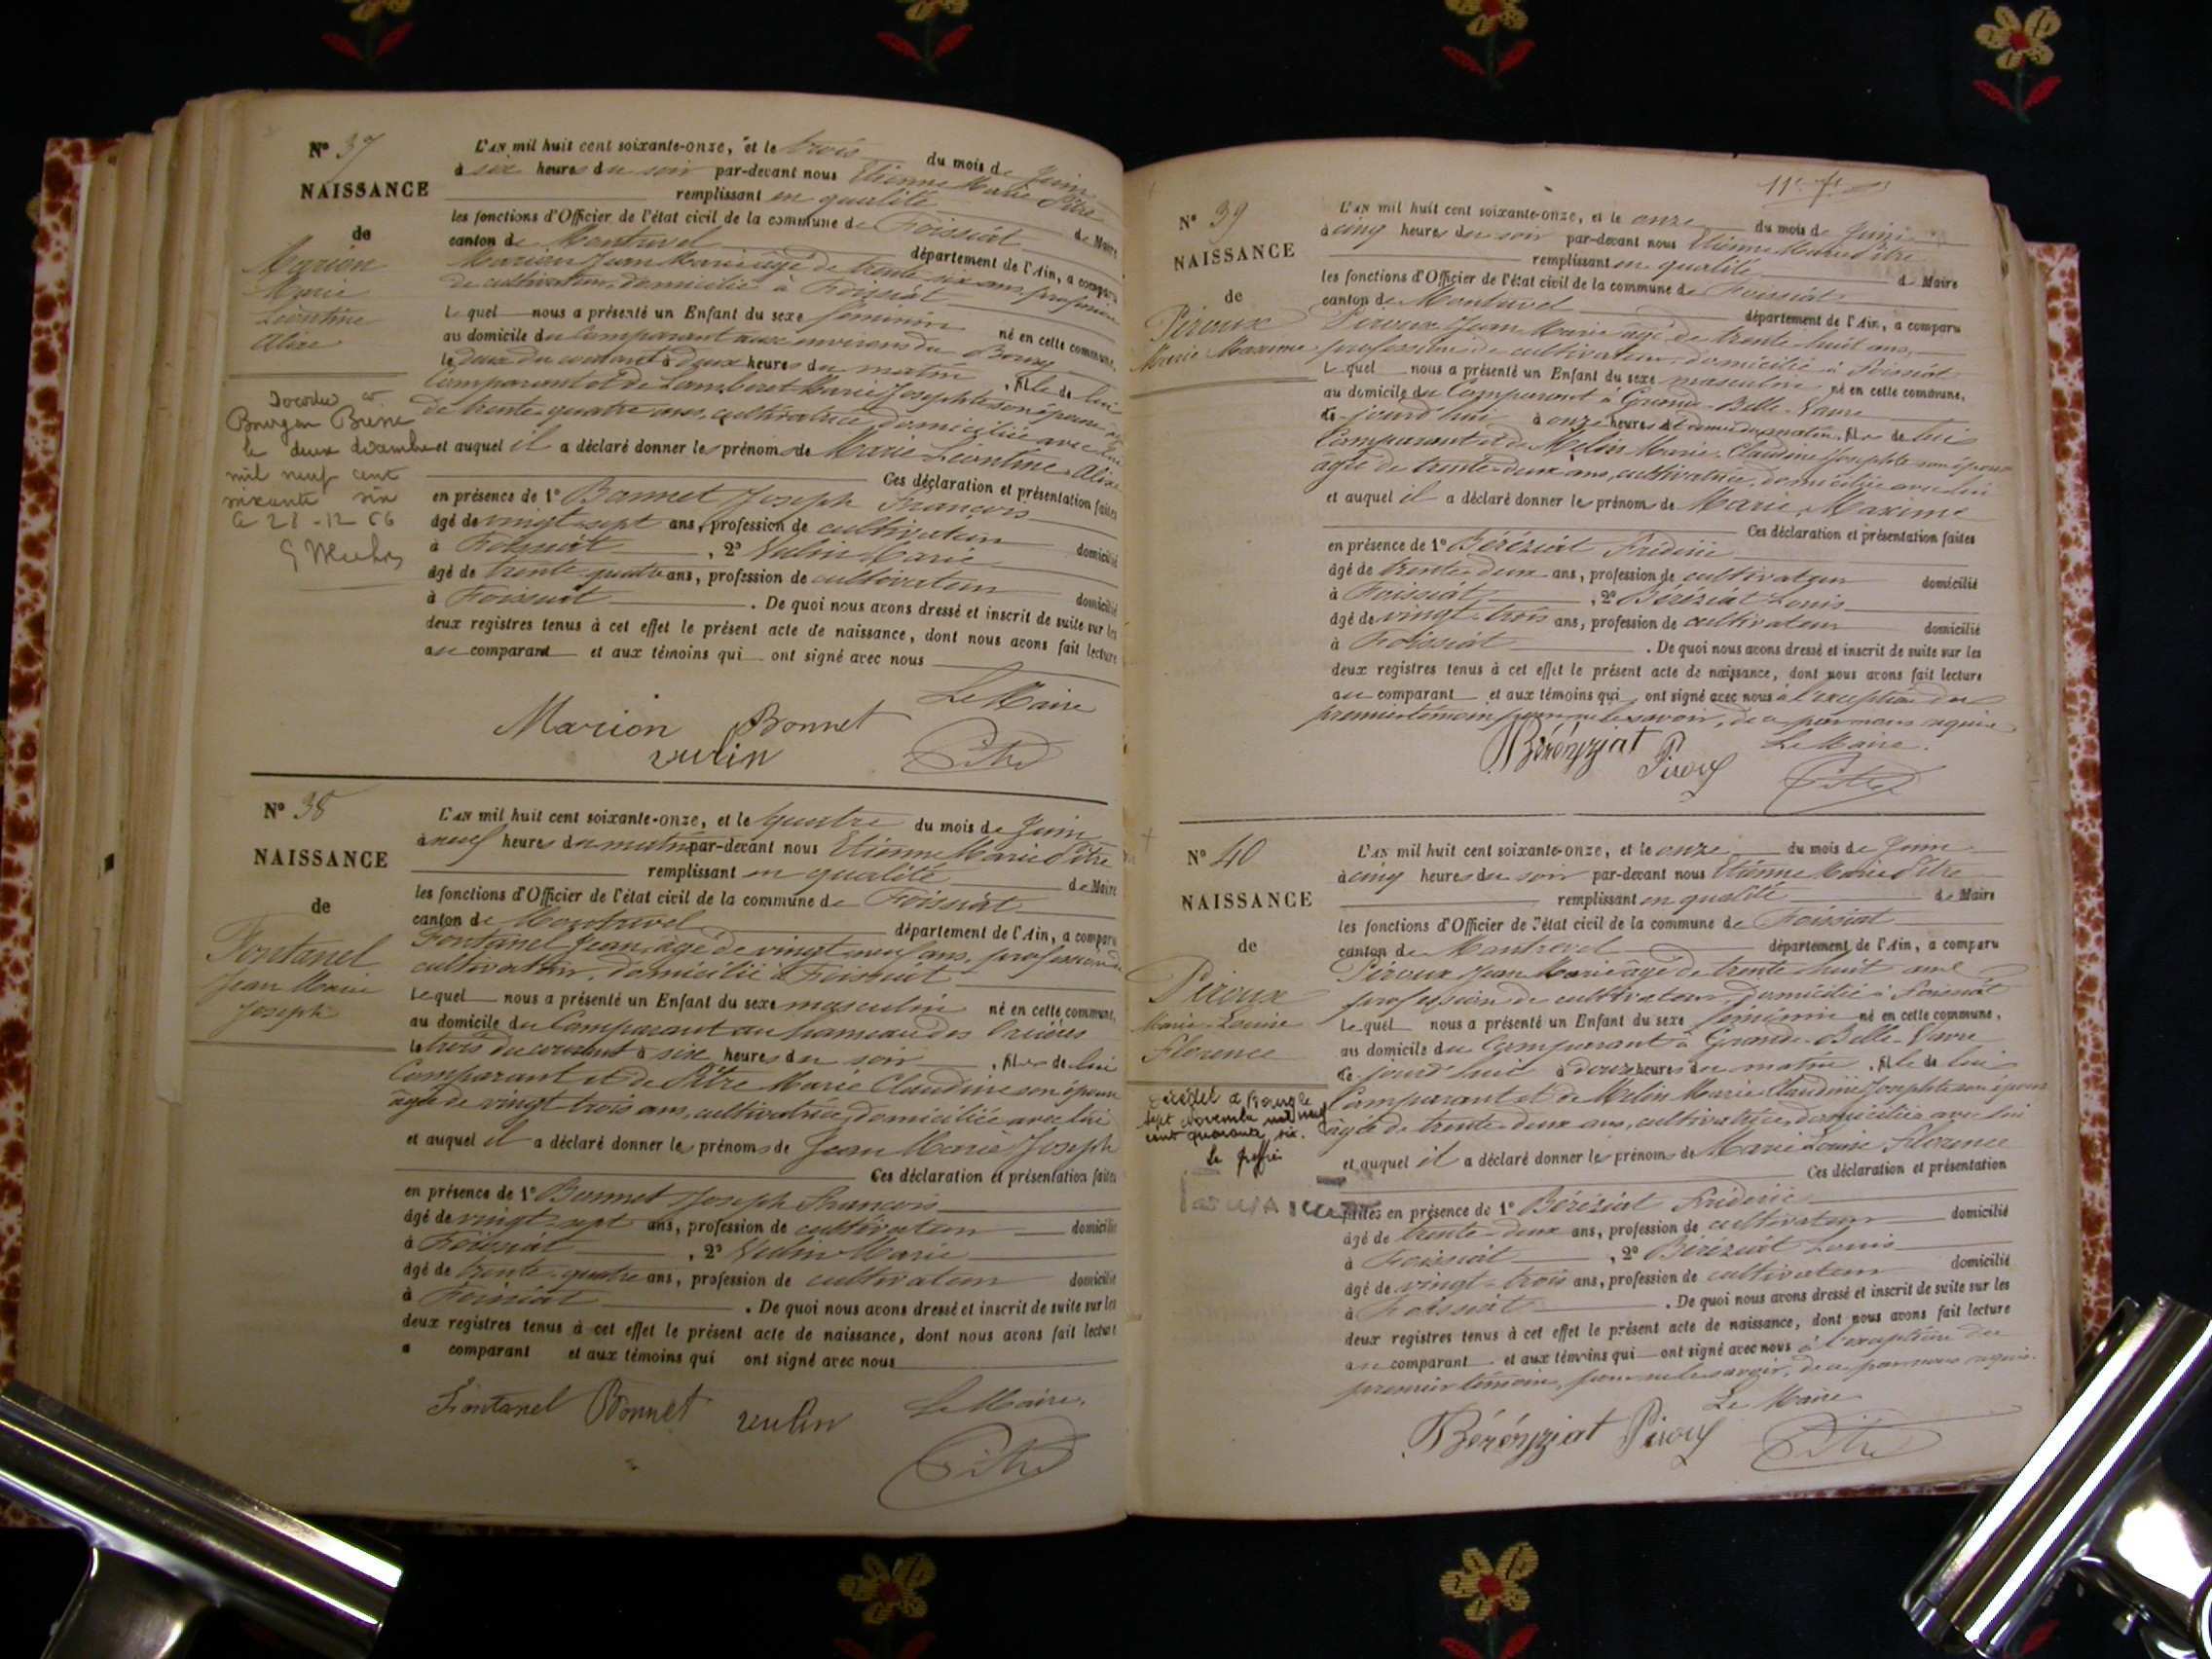 N° 37
NAISSANCE
de
Marion
Marie
Léontine
Alix
Décédée à
Bourg en Bresse
le deux décembre
mil neuf cent
soixante six
le 28-12 66
L'AN mil huit cent soixante-onze, et le trois du mois de Juin
à six heures du soir par-devant nous Etienne Marie Pitre
remplissant en qualité de Maire
les fonctions d'Officier de l'état civil de la commune de Foissiat
canton de Montrevel département de l'Ain, a comparu
Marion Jean Marie âgé de trente-six ans, profession
de cultivateur, domicilié à Foissiat
lequel nous a présenté un Enfant du sexe féminin né en cette commune,
au domicile du Comparant aux environs du Bourg
le deux du courant à deux heures du matin, fille de lui
Comparant et de Lambert Marie Josephte son épouse
de trente-quatre ans, cultivatrice domiciliée avec lui
et auquel il a déclaré donner les prénoms de Marie Léontine Alix
Ces déclaration et présentation faites
en présence de 1° Bonnet Joseph François
âgé de vingt-sept ans, profession de cultivateur domicilié
à Foissiat, 2° Vulin Marie
âgé de trente-quatre ans, profession de cultivateur domicilié
à Foissiat. De quoi nous avons dressé et inscrit de suite sur les
deux registres tenus à cet effet le présent acte de naissance, dont nous avons fait lecture
au comparant et aux témoins qui ont signé avec nous
Le Maire
Marion Bonnet
vulin Pitre
N° 38
NAISSANCE
de
Fontanel
Jean Marie
Joseph
L'AN mil huit cent soixante-onze, et le quatre du mois de Juin
à neuf heures du matin par-devant nous Etienne Marie Pitre
remplissant en qualité de Maire
les fonctions d'Officier de l'état civil de la commune de Foissiat
canton de Montrevel département de l'Ain, a comparu
Fontanel Jean, âgé de vingt-neuf ans, profession de
cultivateur, domicilié à Foissiat
lequel nous a présenté un Enfant du sexe masculin né en cette commune,
au domicile du Comparant au hameau des
le trois du courant à six heures du soir, fils de lui
Comparant et de Pitre Marie Claudine son épouse
âgée de vingt-trois ans, cultivatrice, domiciliée avec lui
et auquel il a déclaré donner les prénoms de Jean Marie Joseph
Ces déclaration et présentation faites
en présence de 1° Bonnet Joseph François
âgé de vingt-sept ans, profession de cultivateur domicilié
à Foissiat, 2° Vulin Marie
âgé de trente-quatre ans, profession de cultivateur domicilié
à Foissiat. De quoi nous avons dressé et inscrit de suite sur les
deux registres tenus à cet effet le présent acte de naissance, dont nous avons fait lecture
a comparant et aux témoins qui ont signé avec nous
Fontanel Bonnet vulin Le Maire,
Pitre
11e
N° 39
NAISSANCE
de
Piroux
Marie Maxime
L'AN mil huit cent soixante-onze, et le onze du mois de Juin
à cinq heures du soir par-devant nous Etienne Marie Pitre
remplissant en qualité de Maire
les fonctions d'Officier de l'état civil de la commune de Foissiat
canton de Montrevel département de l'Ain, a comparu
Piroux Jean Marie âgé de trente-huit ans,
profession de cultivateur, domicilié à Foissiat
lequel nous a présenté un Enfant du sexe masculin né en cette commune,
au domicile du Comparant à Grande-Belle-Vavre
ce jourd'hui à onze heures et demie du matin, fils de lui
Comparant et de Melin Marie Claudine Josephte son épouse
âgée de trente-deux ans, cultivatrice, domiciliée avec lui
et auquel il a déclaré donner les prénom de Marie Maxime
Ces déclaration et présentation faites
en présence de 1° Béréziat Fréderic
âgé de trente-deux ans, profession de cultivateur domicilié
à Foissiat, 2° Béréziat Louis
âgé de vingt-trois ans, profession de cultivateur domicilié
à Foissiat. De quoi nous avons dressé et inscrit de suite sur les
deux registres tenus à cet effet le présent acte de naissance, dont nous avons fait lecture
au comparant et aux témoins qui ont signé avec nous à l'exception du
premier témoin pour ne le savoir, de ce par nous requis
Le Maire.
Bérénziat Piroux Pitre
N° 40
NAISSANCE
de
Piroux
Marie-Louise
Florence
Décédée à Bourg le
sept novembre mil neuf
cent quarante six.
Le greffier
L'AN mil huit cent soixante-onze, et le onze du mois de Juin
à cinq heures du soir par-devant nous Etienne Marie Pitre
remplissant en qualité de Maire
les fonctions d'Officier de l'état civil de la commune de Foissiat
canton de Montrevel département de l'Ain, a comparu
Piroux Jean Marie âgé de trente-huit ans
profession de cultivateur, domicilié à Foissiat
lequel nous a présenté un Enfant du sexe féminin né en cette commune,
au domicile du Comparant à Grande-Belle-Vavre
ce jourd'hui à douze heures du matin, fille de lui
Comparant et de Melin Marie Claudine Josephte son épouse
âgée de trente-deux ans, cultivatrice, domiciliée avec lui
et auquel il a déclaré donner les prénoms de Marie Louise Florence
Ces déclaration et présentation
faites en présence de 1° Béréziat Fréderic
âgé de trente-deux ans, profession de cultivateur domicilié
à Foissiat, 2° Béréziat Louis
âgé de vingt-trois ans, profession de cultivateur domicilié
à Foissiat. De quoi nous avons dressé et inscrit de suite sur les
deux registres tenus à cet effet le présent acte de naissance, dont nous avons fait lecture
au comparant et aux témoins qui ont signé avec nous à l'exception du
premier témoin, pour ne le savoir, de ce par nous requis.
Le Maire
Bérénziat Piroux Pitre